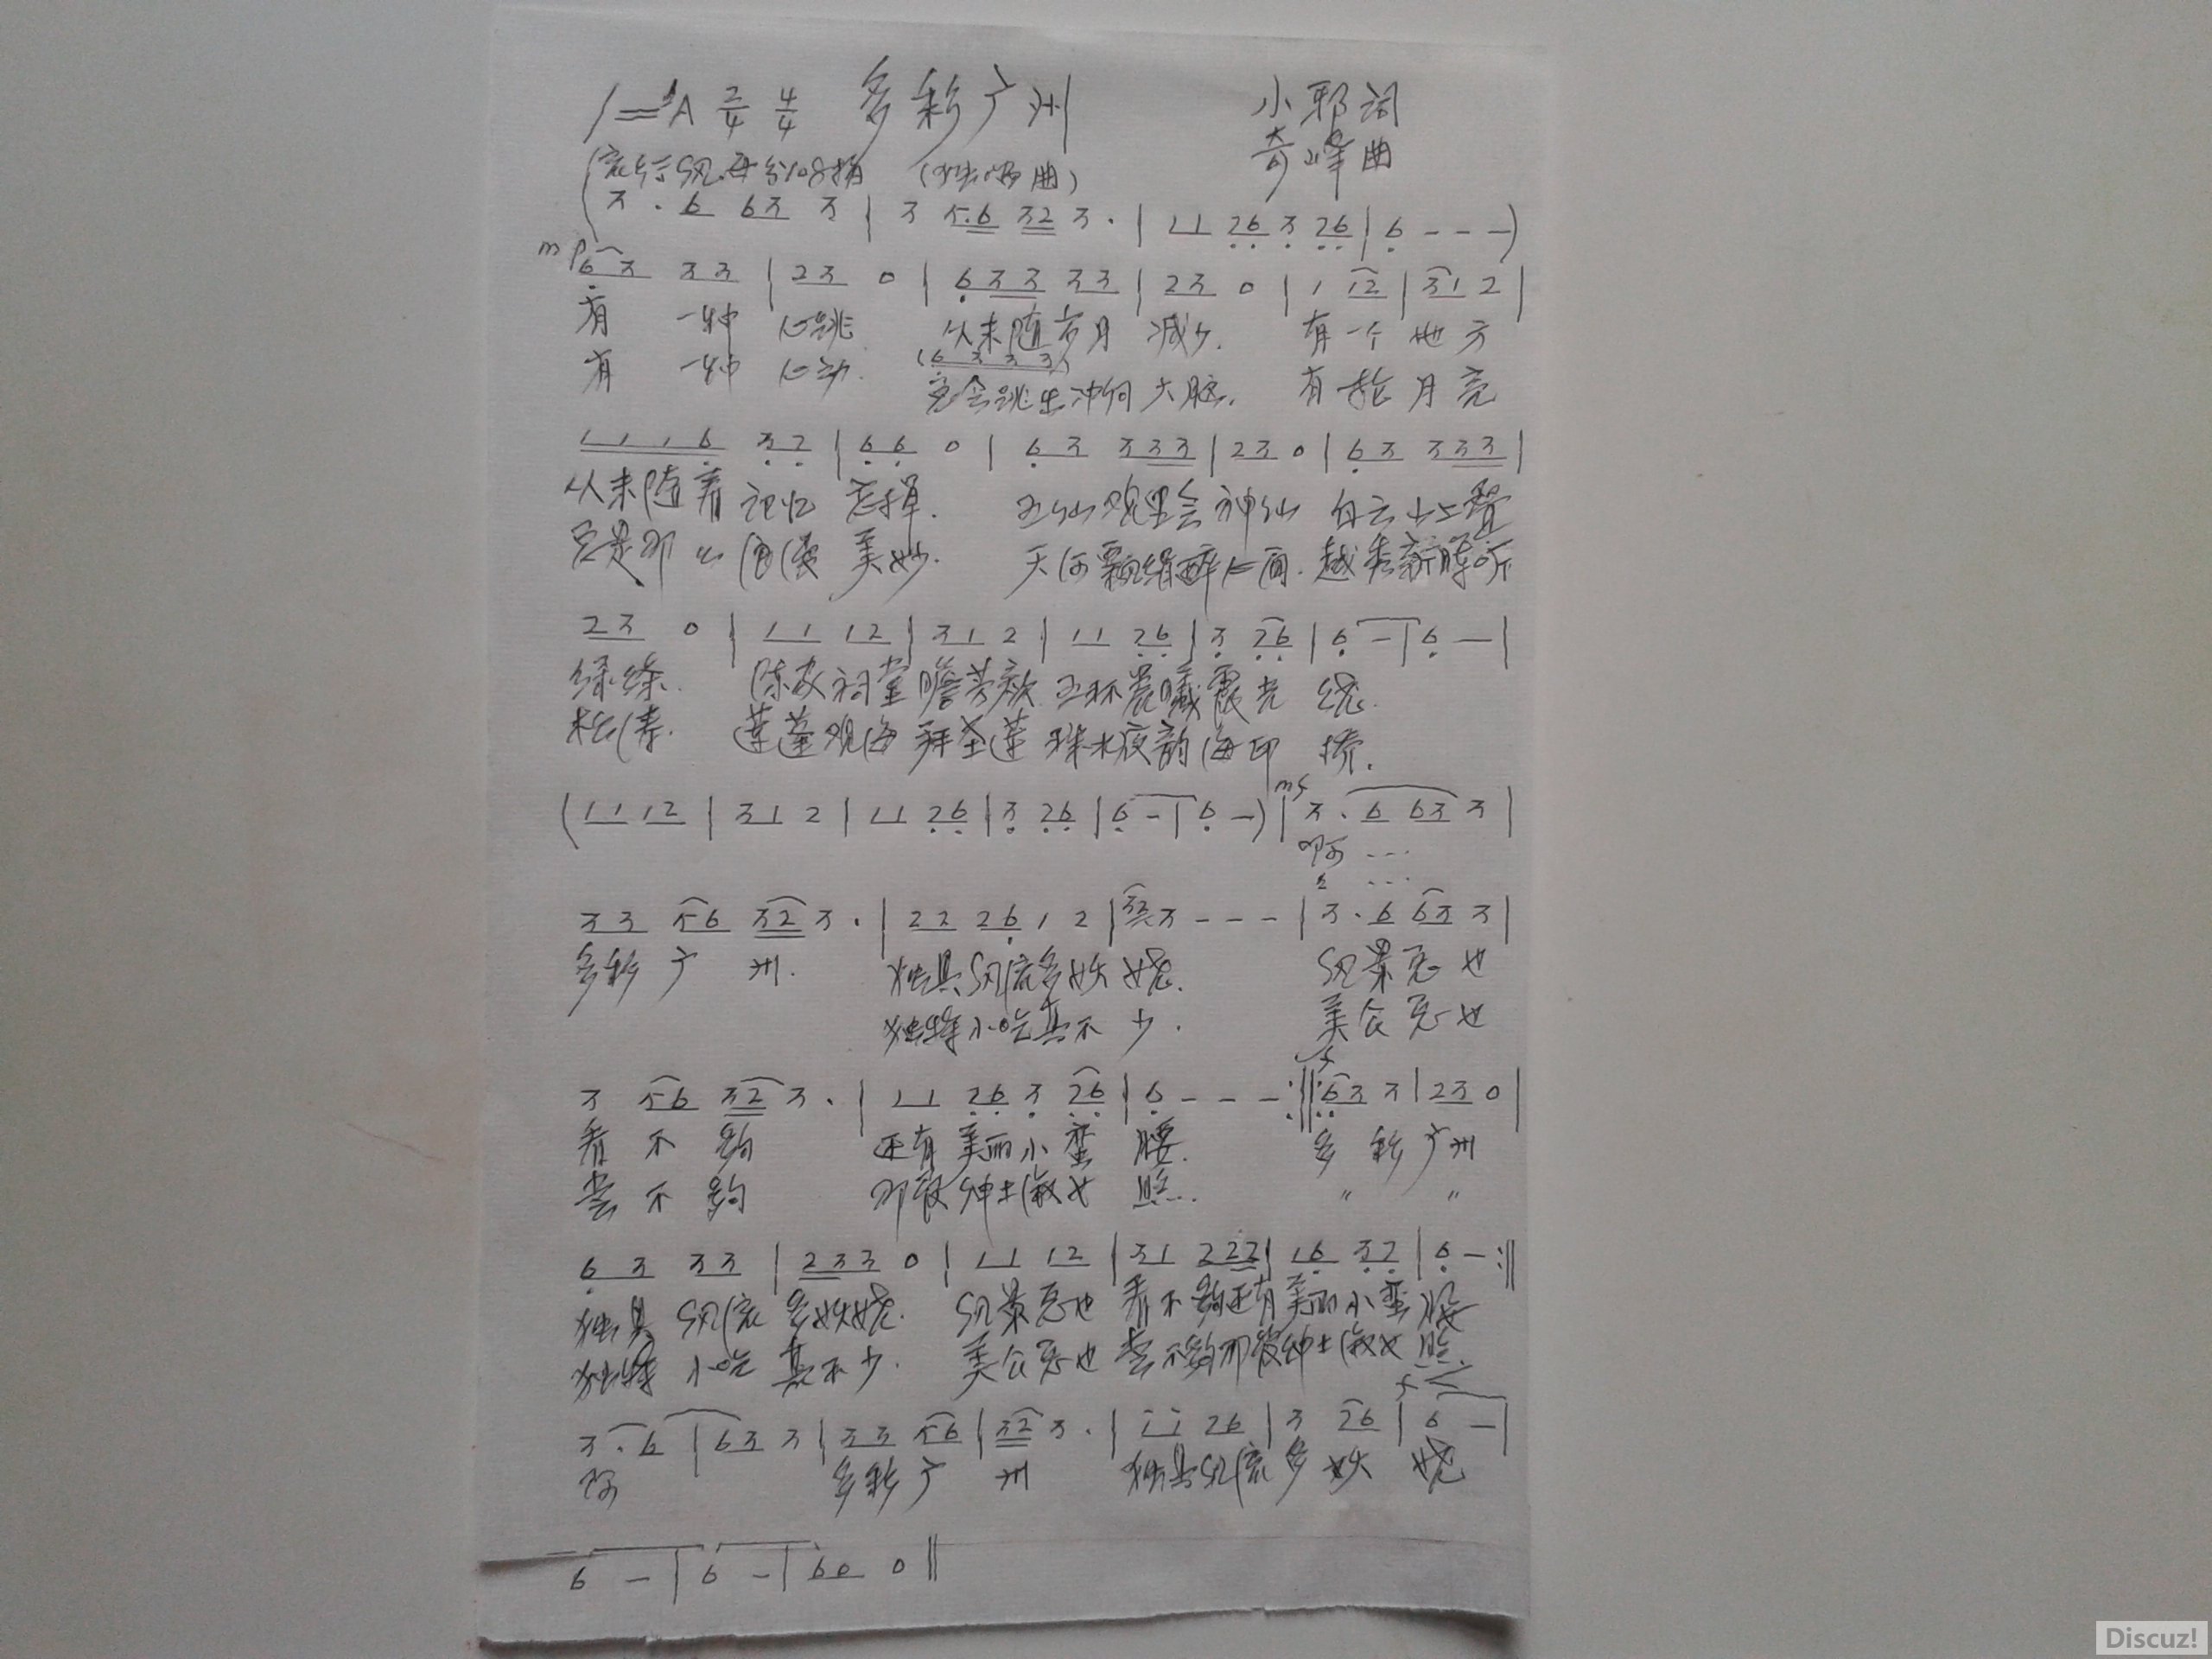 1=A 2/4 4/4 多彩广州 小邪词
流行风.每分108拍 (独唱曲) 奇峰曲
(3 . 6 63 3 | 3 5.6 32 3 . | 11 26 3 26 | 6 - - -)
mp 63 33 | 23 0 | 633 33 | 23 0 | 1 12 | 31 2 |
有 一种 心跳. 从未随岁月 减少. 有一个 地方
有 一种 心动. (6 3 3 3)
竟会跳出冲向大脑. 有轮月亮
1 1 1 6 32 | 66 0 | 63 333 | 23 0 | 63 333 |
从未随着 记忆 忘掉. 五仙观里会神仙 白云山上覽
总是那么 浪漫 美妙. 天河飘绢醉心间. 越秀新暉听
23 0 | 11 12 | 31 2 | 11 26 | 3 26 | 6 - | 6 - |
绿绦. 陈家祠堂瞻芳 五环晨曦霞光 绕.
松涛. 莲蓬观海拜圣莲 珠水夜韵海印 桥.
(11 12 | 31 2 | 11 26 | 3 26 | 6 - | 6 -) | mf 3 . 6 63 3 |
啊 ...
33 56 32 3 . | 22 26 1 2 | 3 - - - | 3 . 6 63 3 |
多彩 广 州. 独具风流多妖娆. 风景怎也
独特小吃真不少. 美食怎也
3 56 32 3 . | 11 26 3 26 | 6 - - - :‖: f 63 3 | 23 0 |
看 不 够 还有美丽小蛮 腰. 多 彩广州
尝 不 够 那般绅士淑女 照... 〃 〃
63 33 | 233 0 | 11 12 | 31 222 | 16 32 | 6 - :‖
独具 风流 多妖娆. 风景怎也 看不够还有美丽小蛮腰
独特 小吃 真不少. 美食怎也 尝不够那般绅士淑女 照.
f
3 . 6 | 63 3 | 33 56 | 32 3 . | 11 26 | 3 26 | 6 - |
啊 多彩广 州 独具风流多 妖 娆
6 - | 6 - | 60 0 ‖
Discuz!